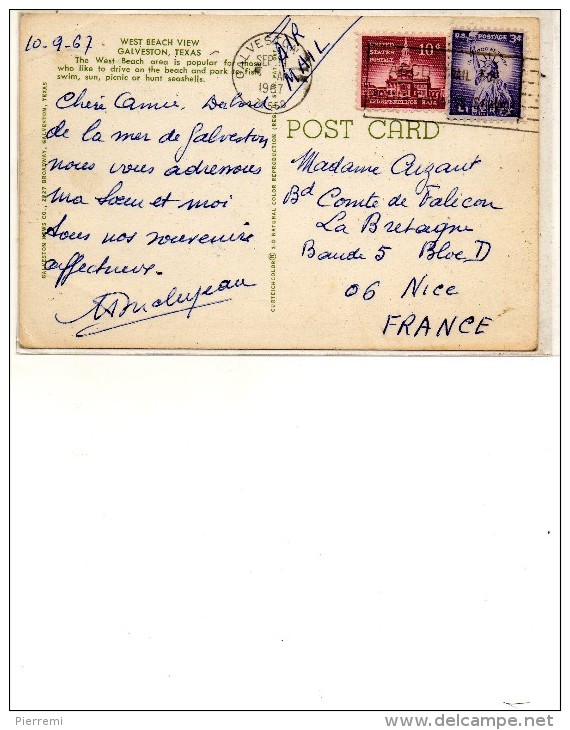 10-9-67
WEST BEACH VIEW
GALVESTON, TEXAS
The West Beach area is popular for those
who like to drive on the beach and park to fish,
swim, sun, picnic or hunt seashells.
Chère Amie. Du bord
de la mer de Galveston
nous vous adressons
ma Sœur et moi
tous nos souvenirs
affectueux.
GALVESTON NEWS CO., 2227 BROADWAY, GALVESTON, TEXAS
CURTEICHCOLOR® 3-D NATURAL COLOR REPRODUCTION
AIR
MAIL
GALVESTON
SEP
AM
1967
UNITED
STATES
POSTAGE
10¢
INDEPENDENCE HALL
U.S. POSTAGE 3¢
POST CARD
Madame Auzant
Bd Comte de Falicon
La Bretagne
Bande 5 Bloc D
06 Nice
FRANCE
Pierremi
www.delcampe.net